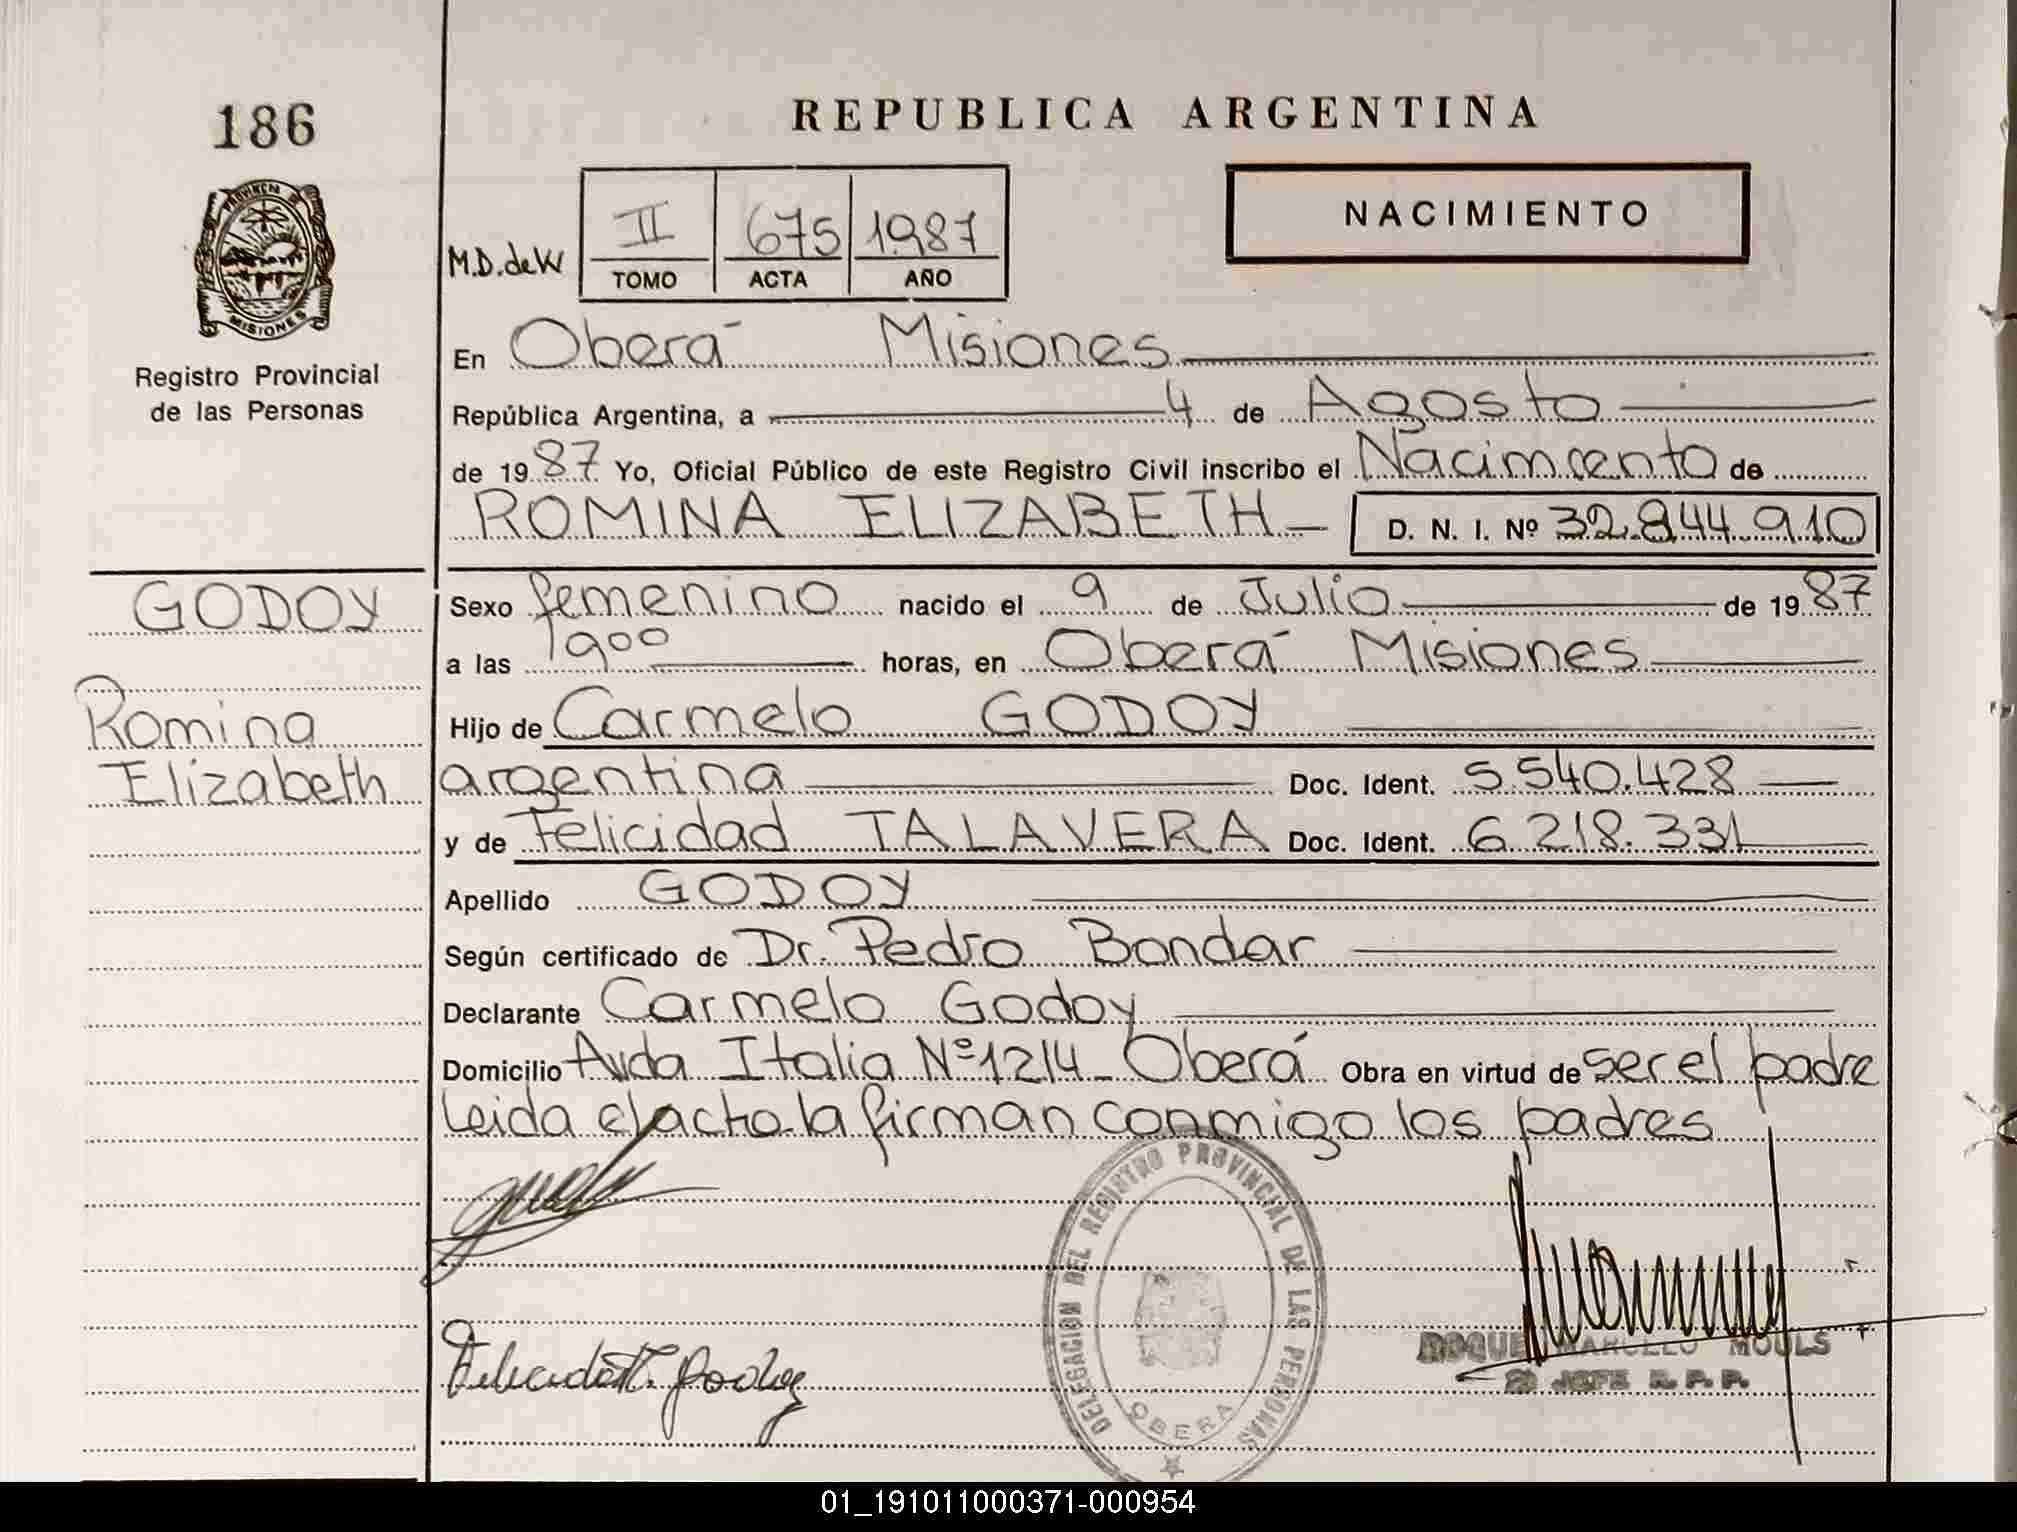 186
PROVINCIA DE
MISIONES
Registro Provincial
de las Personas
GODOY
Romina
Elizabeth
REPUBLICA ARGENTINA
NACIMIENTO
M.D.deW
II 675 1987
TOMO ACTA AÑO
En Oberá Misiones
República Argentina, a 4 de Agosto
de 1987 Yo, Oficial Público de este Registro Civil inscribo el Nacimiento de
ROMINA ELIZABETH D. N. I. Nº 32.844.910
Sexo femenino nacido el 9 de Julio de 1987
a las 1900 horas, en Oberá Misiones
Hijo de Carmelo GODOY
argentina Doc. Ident. 5.540.428
y de Felicidad TALAVERA Doc. Ident. 6.218.331
Apellido GODOY
Según certificado de Dr. Pedro Bondar
Declarante Carmelo Godoy
Domicilio Avda Italia Nº1214 - Oberá Obra en virtud de ser el padre
Leida el acta la firman conmigo los padres
DELEGACION DEL REGISTRO PROVINCIAL DE LAS PERSONAS
OBERA
ROQUE MARCELO MOULS
JEFE R. P. P.
01_191011000371-000954